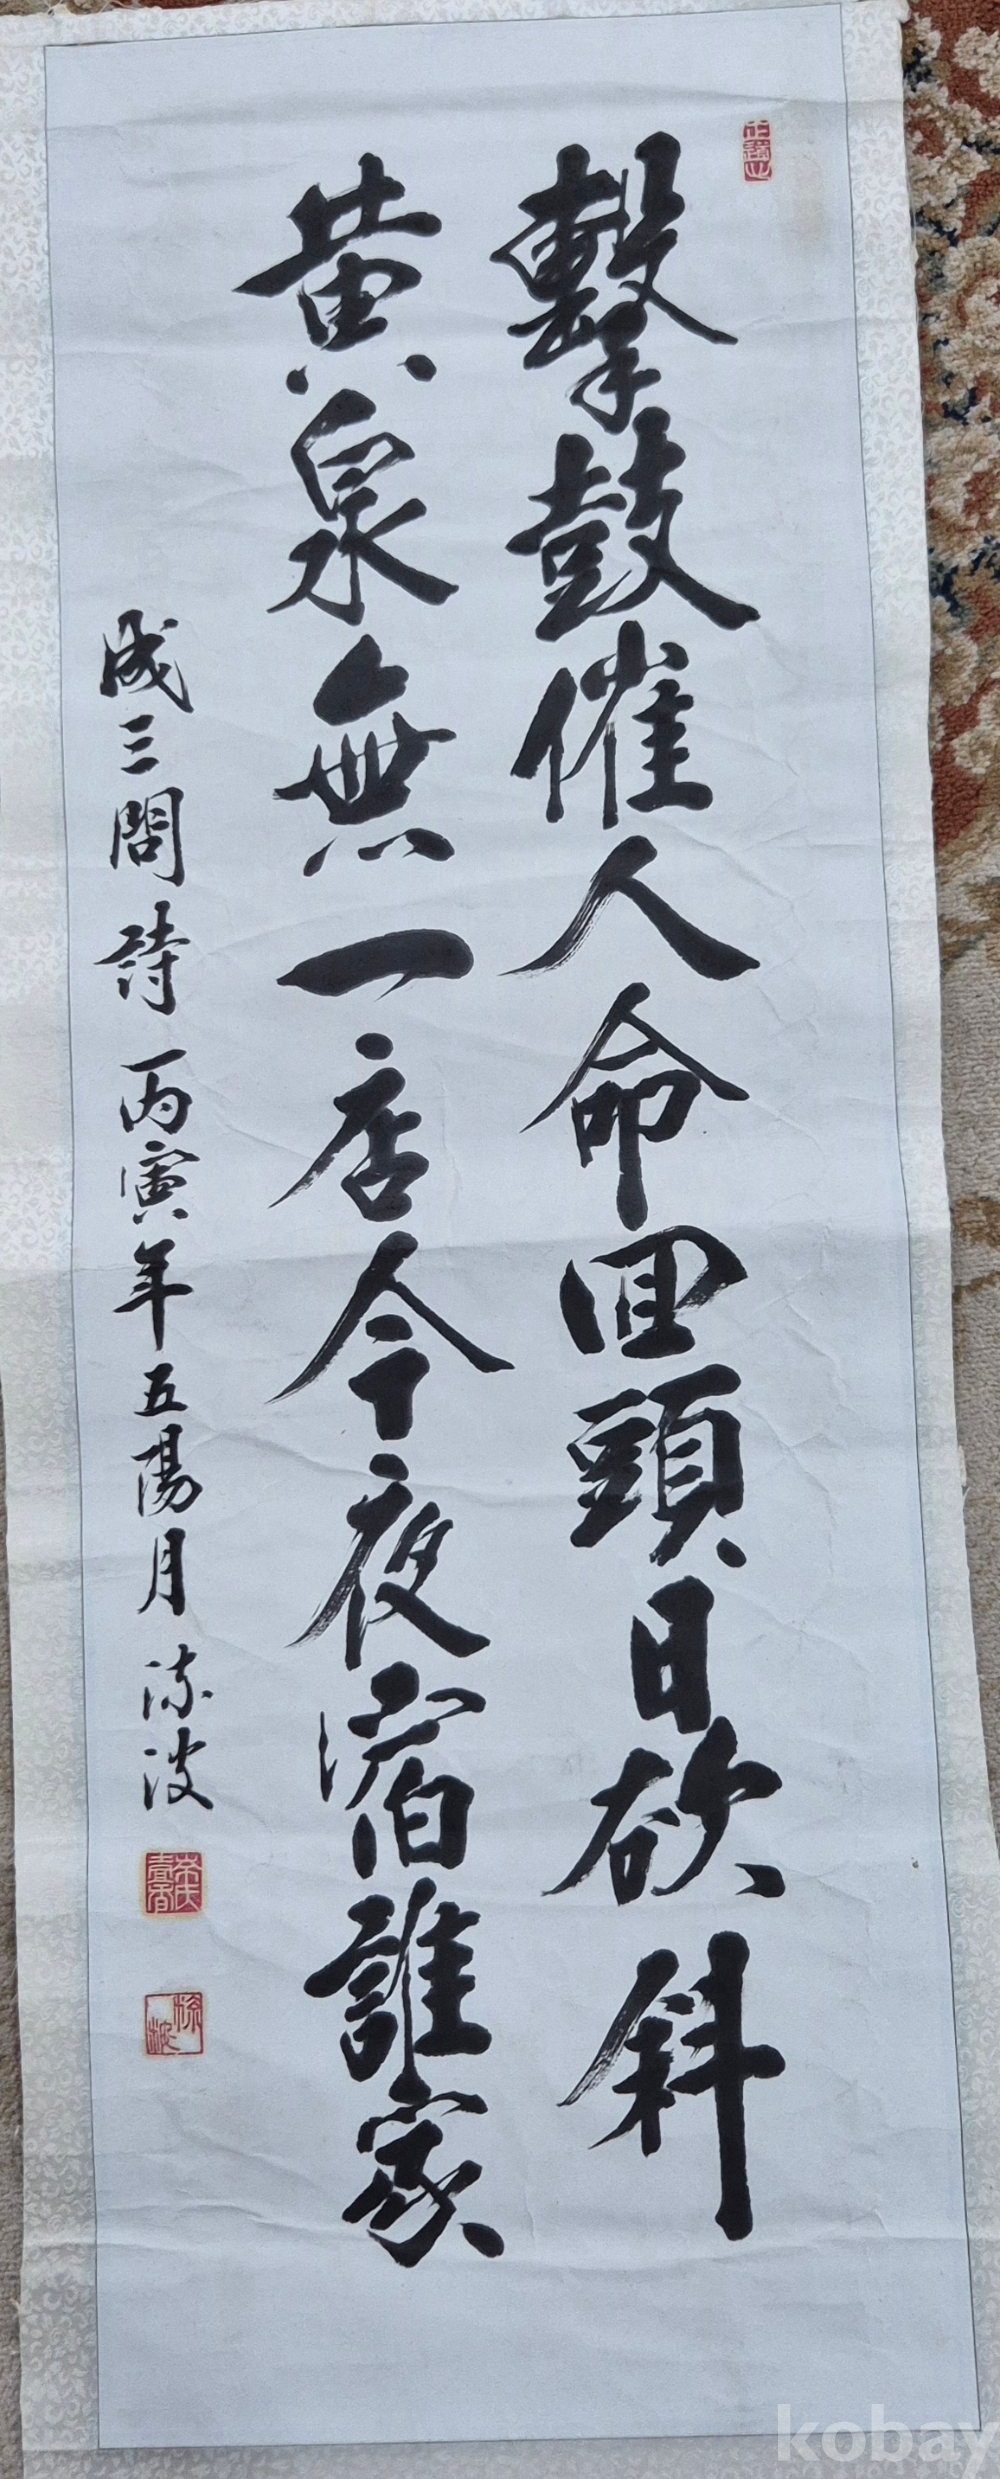 擊鼓催人命回頭日欲斜
黃泉無一店今夜宿誰家
成三問詩 丙寅年五陽月
kobay